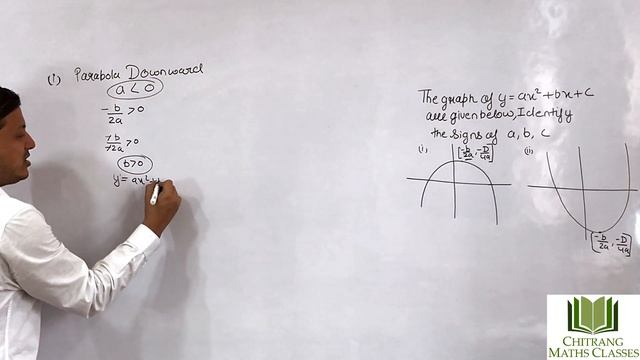 (i) Parabola Downward
a < 0
-b/2a > 0
-b/-2a > 0
b>0
y = ax²+
The graph of y = ax²+bx+c
are given below, Identify
the signs of a, b, c
(i)
[-b/2a, -D/4a]
(ii)
[-b/2a, -D/4a]
CHITRANG
MATHS CLASSES